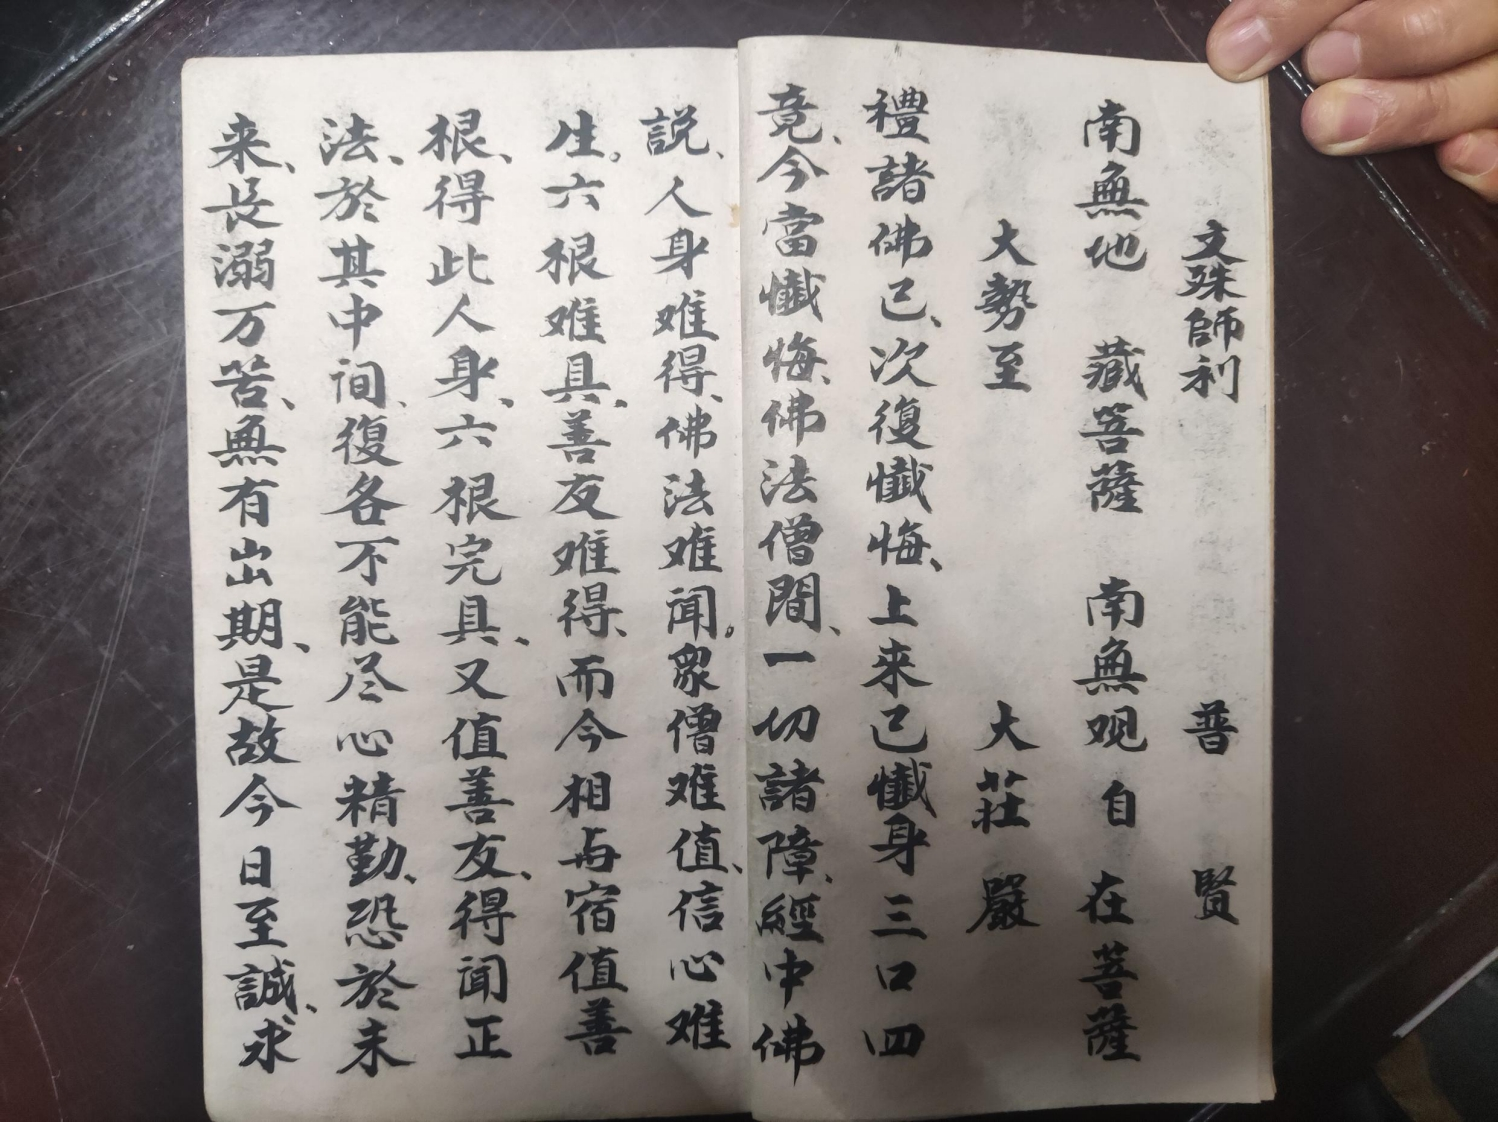 文殊師利 普賢
南無地藏菩薩 南無观自在菩薩
大勢至 大莊嚴
禮諸佛已、次復懺悔、上来已懺身三口四
竟、今當懺悔、佛法僧間、一切諸障、經中佛
説、人身难得、佛法难闻。眾僧难值、信心难
生。六根难具、善友难得、而今相与宿值善
根、得此人身、六根完具、又值善友、得闻正
法、於其中间、復各不能尽心精勤、恐於未
来、長溺万苦、無有出期、是故今日至誠、求